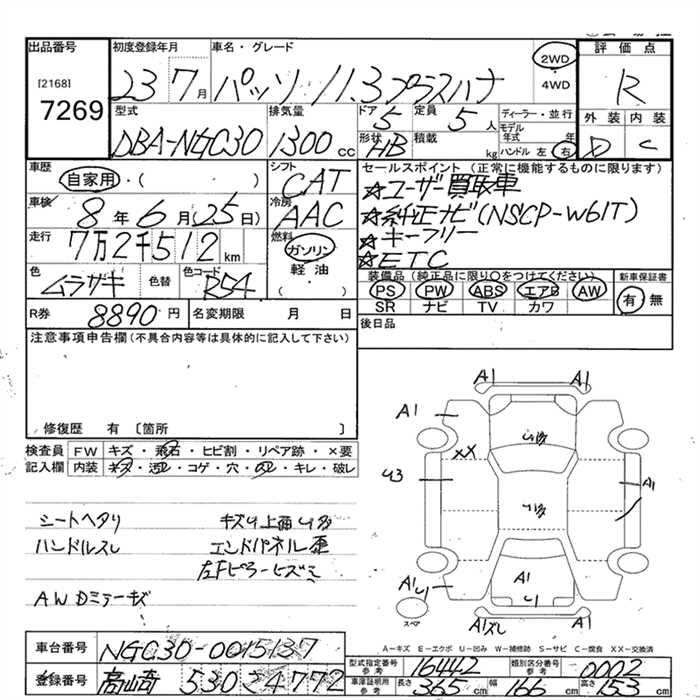 出品番号 初度登録年月 車名・グレード 2WD 評価点
[2168] 23 7月 パッソ 1.3プラスハナ 4WD R
7269 型式 排気量 ドア 5 定員 5人 ディーラー・並行 外装 内装
DBA-NGC30 1300cc 形状 HB 積載 kg モデル年式 年 D C
ハンドル 左 右
車歴 シフト セールスポイント (正常に機能するものに限ります)
自家用・( ) CAT ☆ユーザー買取車
車検 8年6月25日) 冷房 AAC ☆純正ナビ(NSCP-W61T)
走行 7万2千512km 燃料 ガソリン ☆キーフリー
軽油 ☆ETC
色 ムラサキ 色替 色コード R54 ( ) 装備品 (純正品に限り○をつけてください) 新車保証書
PS PW ABS エアB AW 有 無
SR ナビ TV カワ
R券 8890円 名変期限 月 日 後日品
注意事項申告欄(不具合内容等は具体的に記入して下さい)
修復歴 有 〔箇所 〕
検査員 FW キズ・飛石・ヒビ割・リペア跡・×要
記入欄 内装 キズ・汚レ・コゲ・穴・・キレ・破レ
A1 A1
A1
U多
XX
U3 U多 A1
A1 U1 A1
U1
スペア A1スレ
シートヘタリ キズU上面U多
ハンドルスレ エンドパネル歪
左Fピラーヒズミ
AWDミラーキズ
A−キズ E−エクボ U−凹み W−補修跡 S−サビ C−腐食 XX−交換済
車台番号 NGC30-0015137 型式指定番号 参考 16442 類別区分番号 参考 0002
登録番号 530 24772 車庫証明用 参考 長さ 365cm 幅 166cm 高さ 153cm